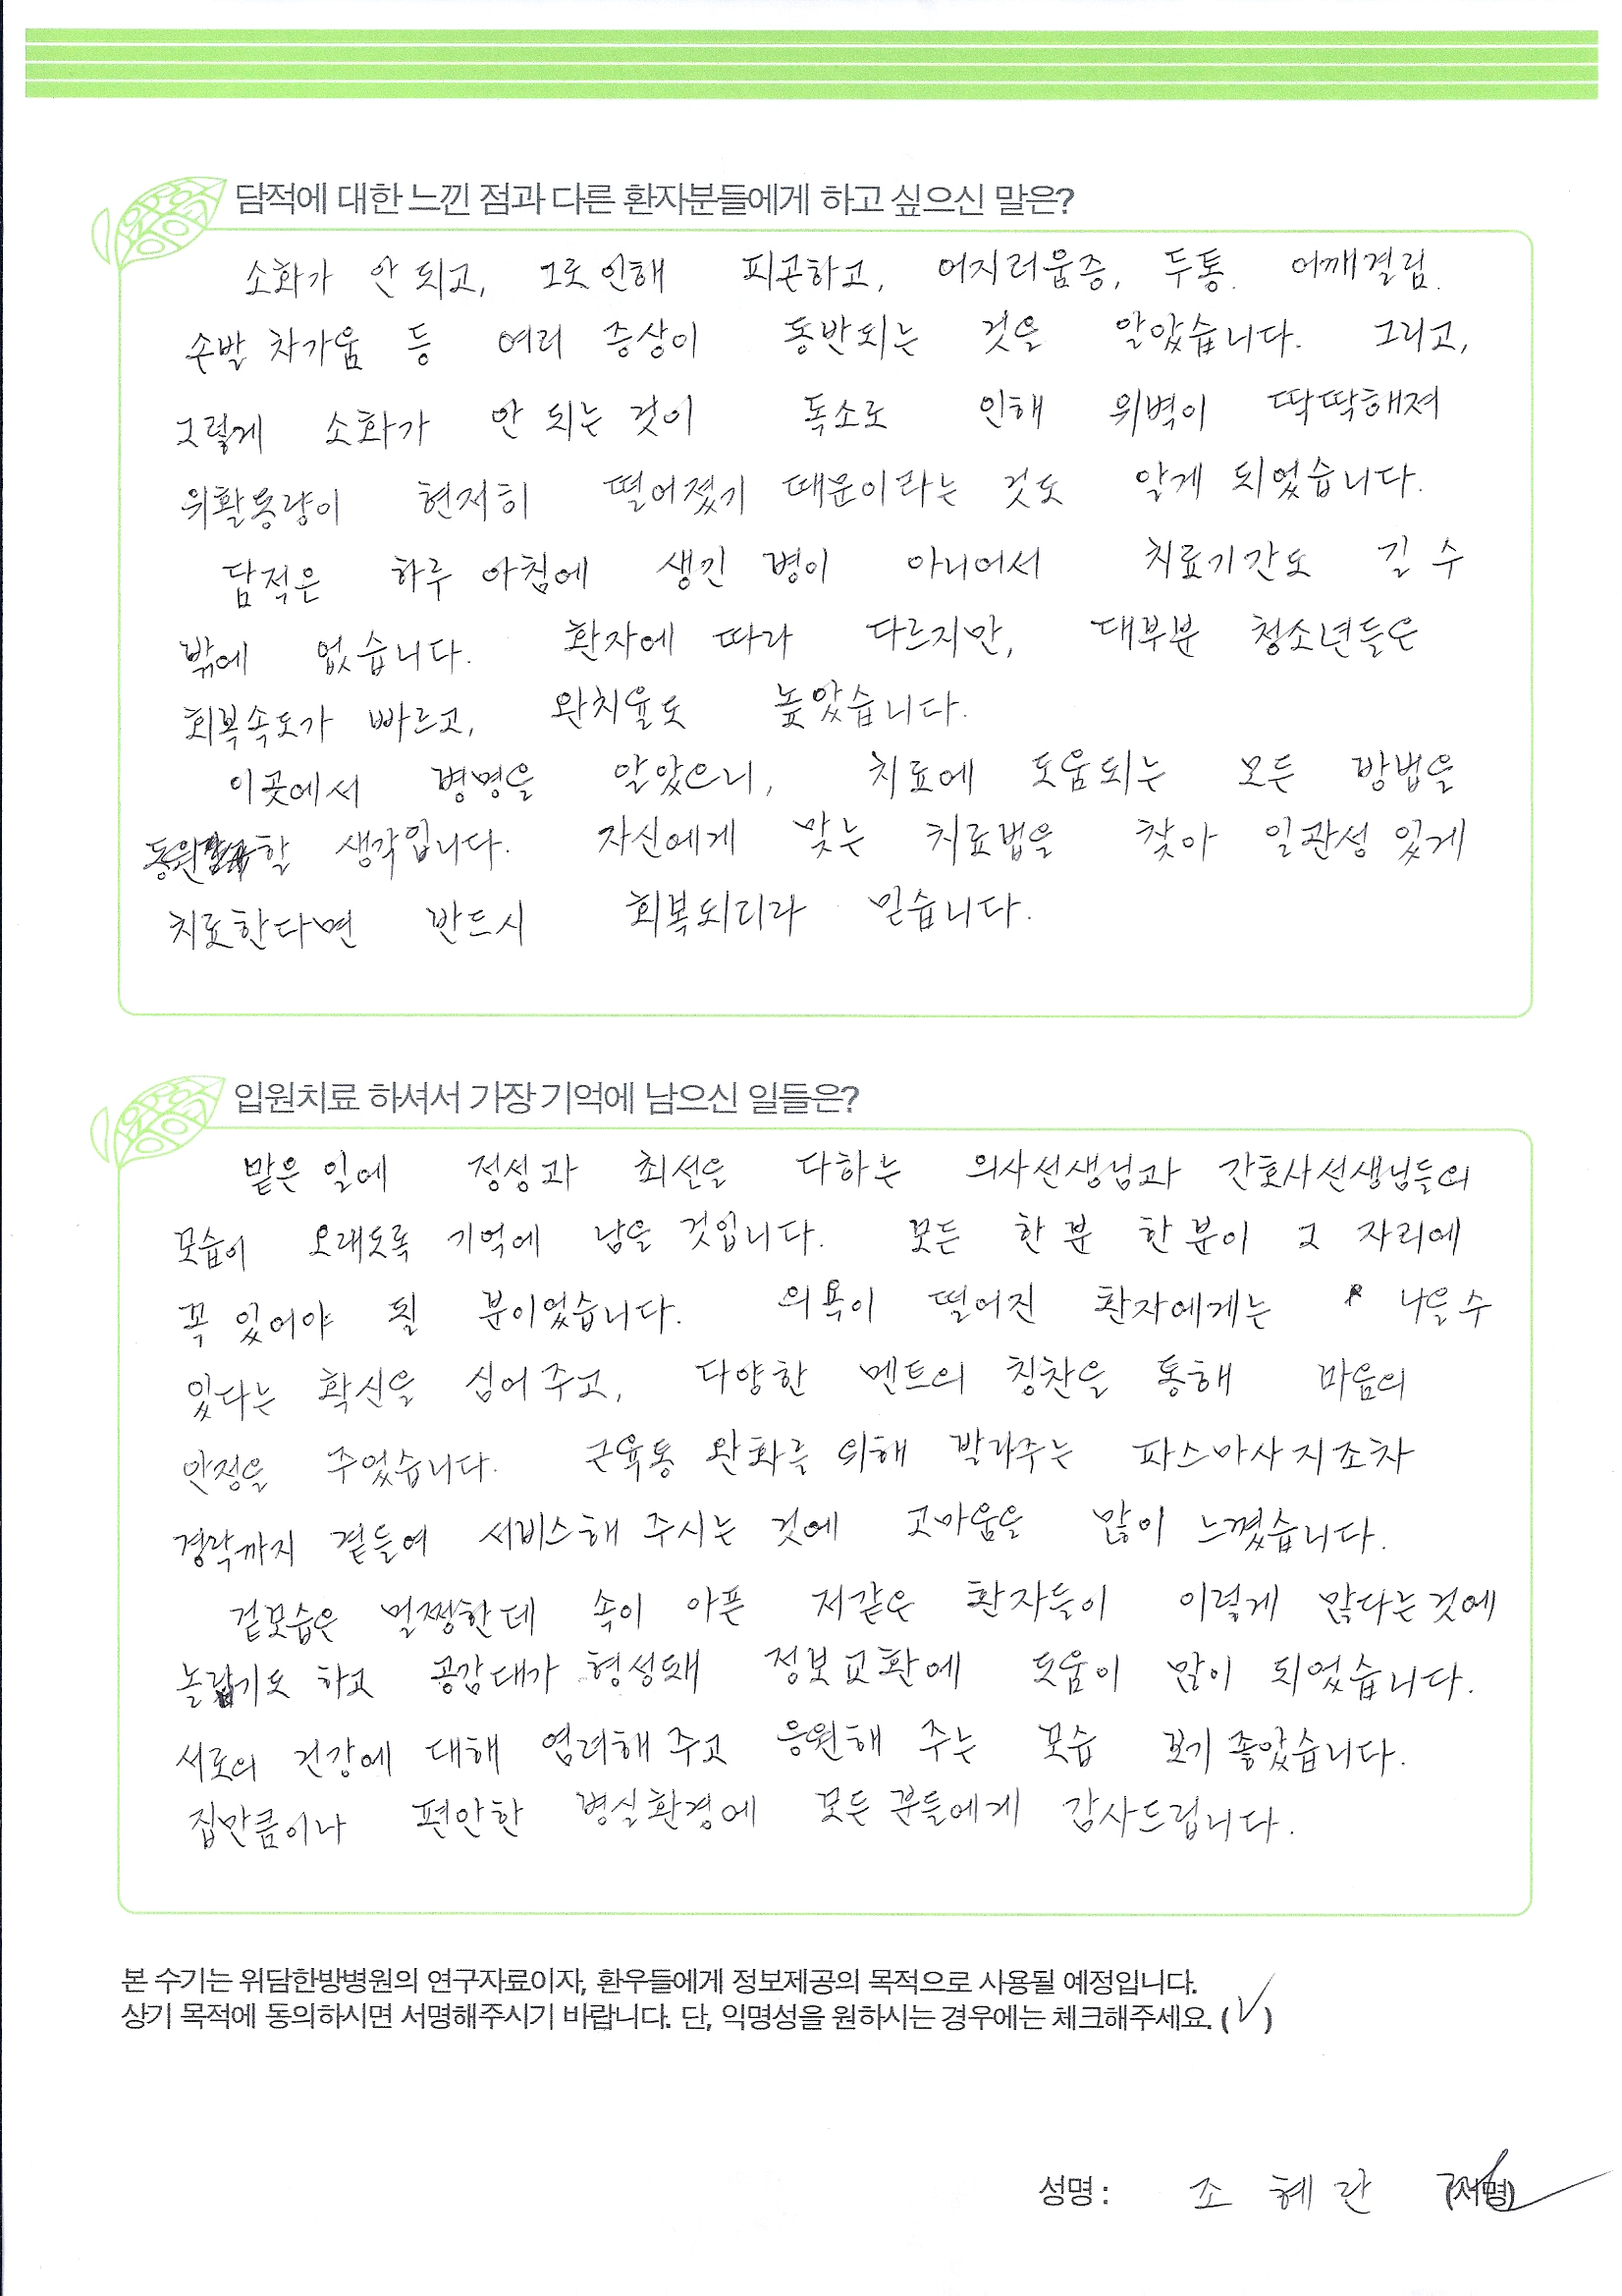 담적에 대한 느낀 점과 다른 환자분들에게 하고 싶으신 말은?
소화가 안 되고, 그로 인해 피곤하고, 어지러움증, 두통. 어깨결림.
손발 차가움 등 여러 증상이 동반되는 것을 알았습니다. 그리고,
그렇게 소화가 안 되는 것이 독소로 인해 위벽이 딱딱해져
위활동량이 현저히 떨어졌기 때문이라는 것도 알게 되었습니다.
담적은 하루 아침에 생긴 병이 아니어서 치료기간도 길 수
밖에 없습니다. 환자에 따라 다르지만, 대부분 청소년들은
회복속도가 빠르고, 완치율도 높았습니다.
이곳에서 병명을 알았으니, 치료에 도움되는 모든 방법을
동원할 생각입니다. 자신에게 맞는 치료법을 찾아 일관성 있게
치료한다면 반드시 회복되리라 믿습니다.
입원치료 하셔서 가장 기억에 남으신 일들은?
맡은 일에 정성과 최선을 다하는 의사선생님과 간호사선생님들의
모습이 오래도록 기억에 남을 것입니다. 모든 한 분 한 분이 그 자리에
꼭 있어야 될 분이었습니다. 의욕이 떨어진 환자에게는 나을 수
있다는 확신을 심어 주고, 다양한 멘트의 칭찬을 통해 마음의
안정을 주었습니다. 근육통 완화를 위해 발라주는 파스마사지조차
경락까지 곁들여 서비스해 주시는 것에 고마움을 많이 느꼈습니다.
겉모습은 멀쩡한데 속이 아픈 저같은 환자들이 이렇게 많다는것에
놀랍기도 하고 공감대가 형성돼 정보교환에 도움이 많이 되었습니다.
서로의 건강에 대해 염려해 주고 응원해 주는 모습 보기 좋았습니다.
집만큼이나 편안한 병실환경에 모든 분들에게 감사드립니다.
본 수기는 위담한방병원의 연구자료이자, 환우들에게 정보제공의 목적으로 사용될 예정입니다.
상기 목적에 동의하시면 서명해주시기 바랍니다. 단, 익명성을 원하시는 경우에는 체크해주세요. (√)
성명 : 조 혜 란 (서명)